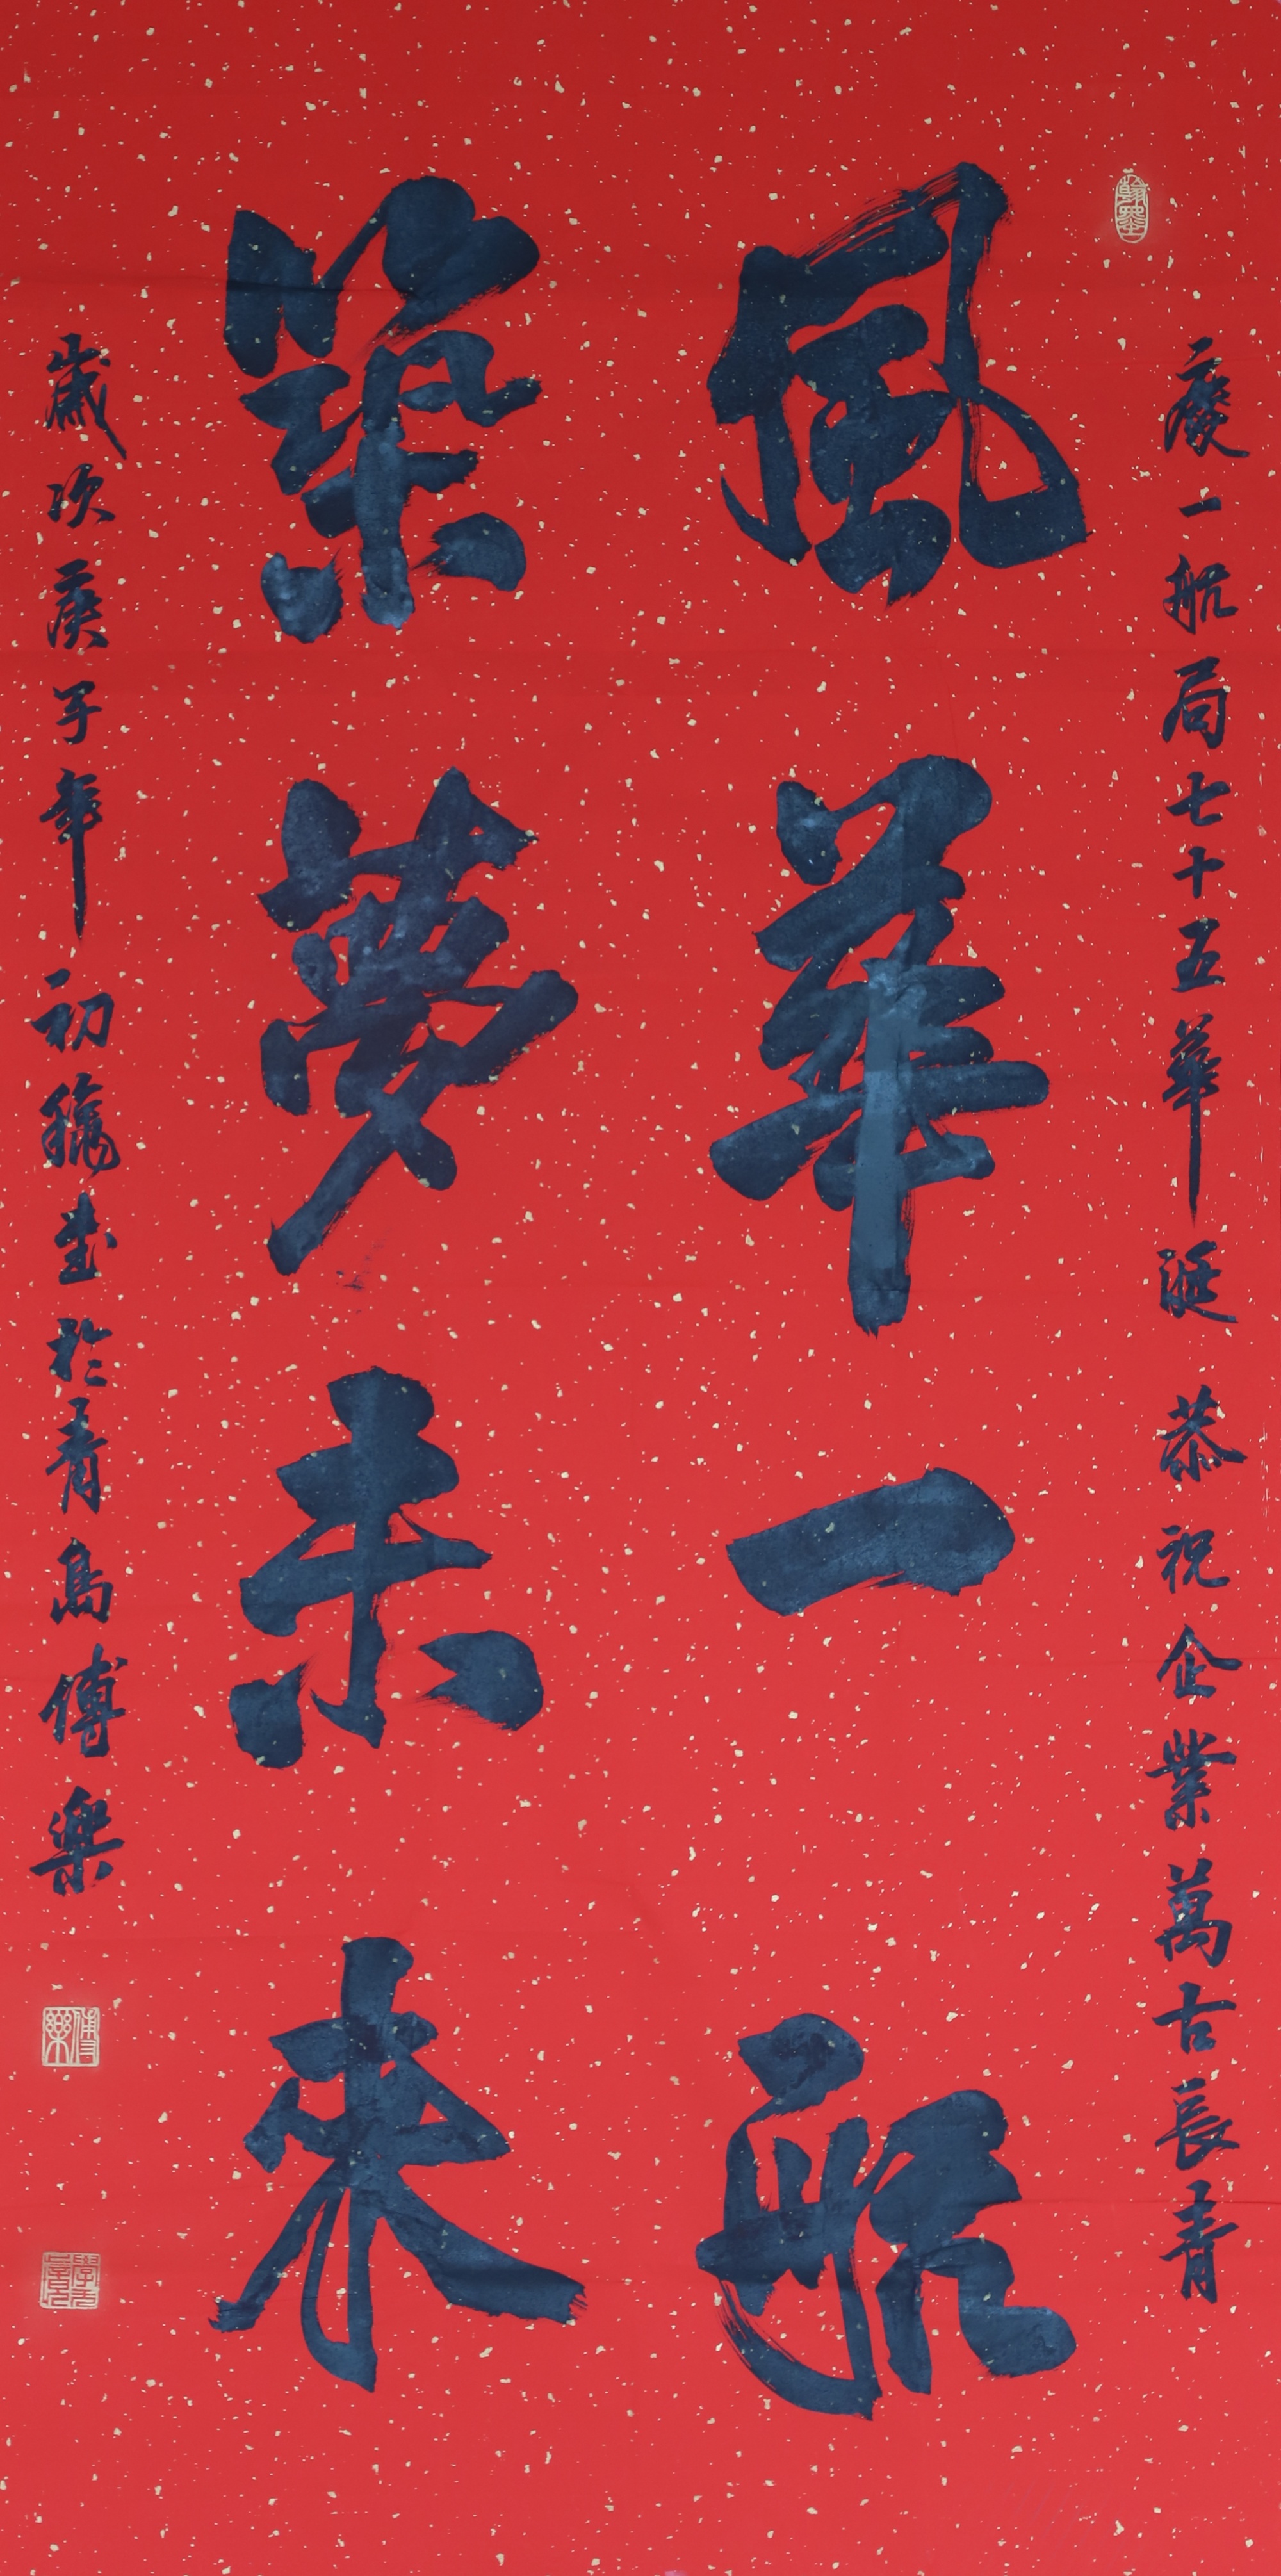 慶一航局七十五華誕恭祝企業萬古長青
風華一航
築夢未來
歲次庚子年初龝書於青島傅樂
翰墨
傅樂